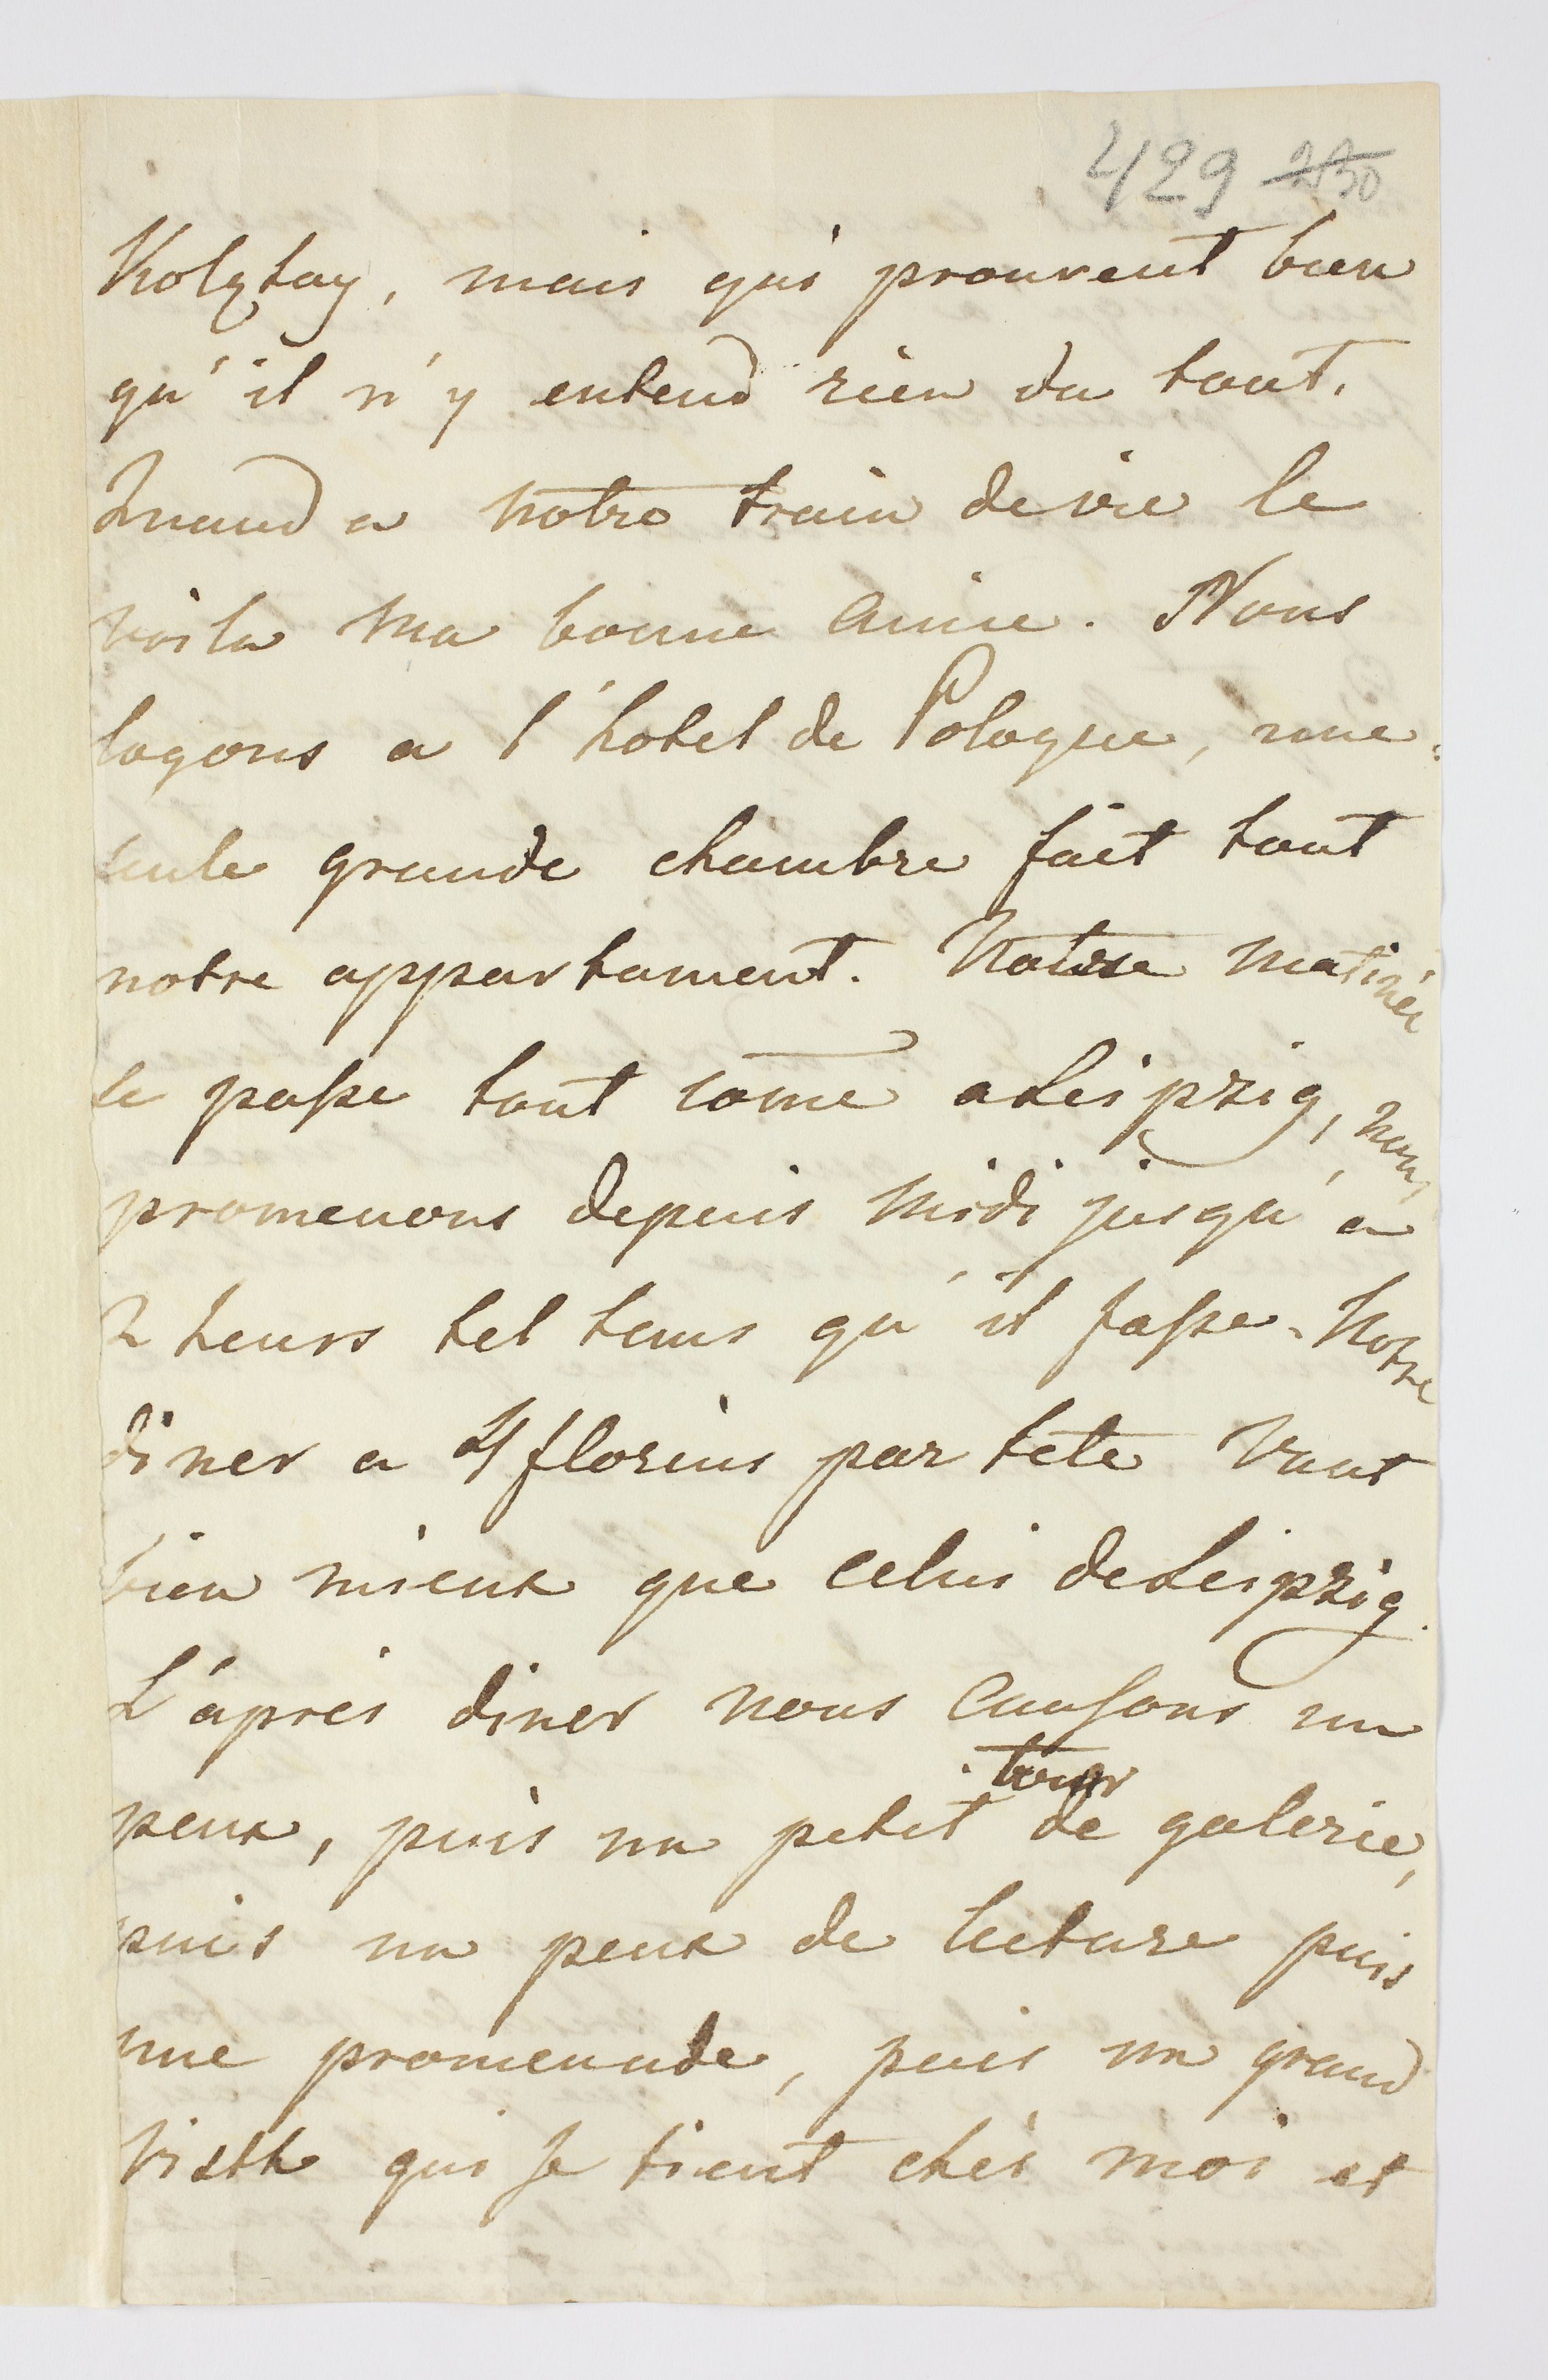 429 250
Kolątay, mais qui prouvent bien
qu'il n'y entend rien du tout.
Quand a notre train de vie le
voila ma bonne amie. Nous
logons a l'hotel de Pologne, une
seule grande chambre fait tout
notre appartament. Notre matinée
se passe tout come a Leipzig, nous
promenons depuis midi jusqu'a
2 heurs tel tems qu'il fasse. Notre
diner a 4 florins par tete vaut
bien mieux que celui de Leipzig.
L'aprés diner nous causons un
peux, puis un petit tour de galerie,
puis un peux de lecture puis
une promenade, puis un grand
Visthe qui se tient chés moi et